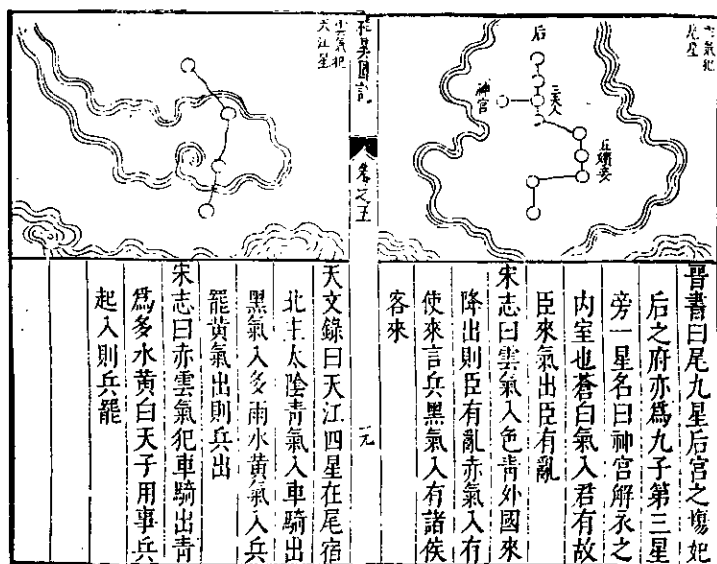 雲氣犯
尾星
后
三夫人
神宮
五嬪妾
晋書曰尾九星后宮之塲妃
后之府亦爲九子第三星
旁一星名曰神宮解衣之
内室也蒼白氣入君有故
臣來氣出臣有亂
宋志曰雲氣入色靑外國來
降出則臣有亂赤氣入有
使來言兵黑氣入有諸侯
客來
卷之五
雲氣犯
天江星
天文錄曰天江四星在尾宿
北主太陰靑氣入車騎出
黑氣入多雨水黃氣入兵
罷黃氣出則兵出
宋志曰赤雲氣犯車騎出靑
爲多水黃白天子用事兵
起入則兵罷